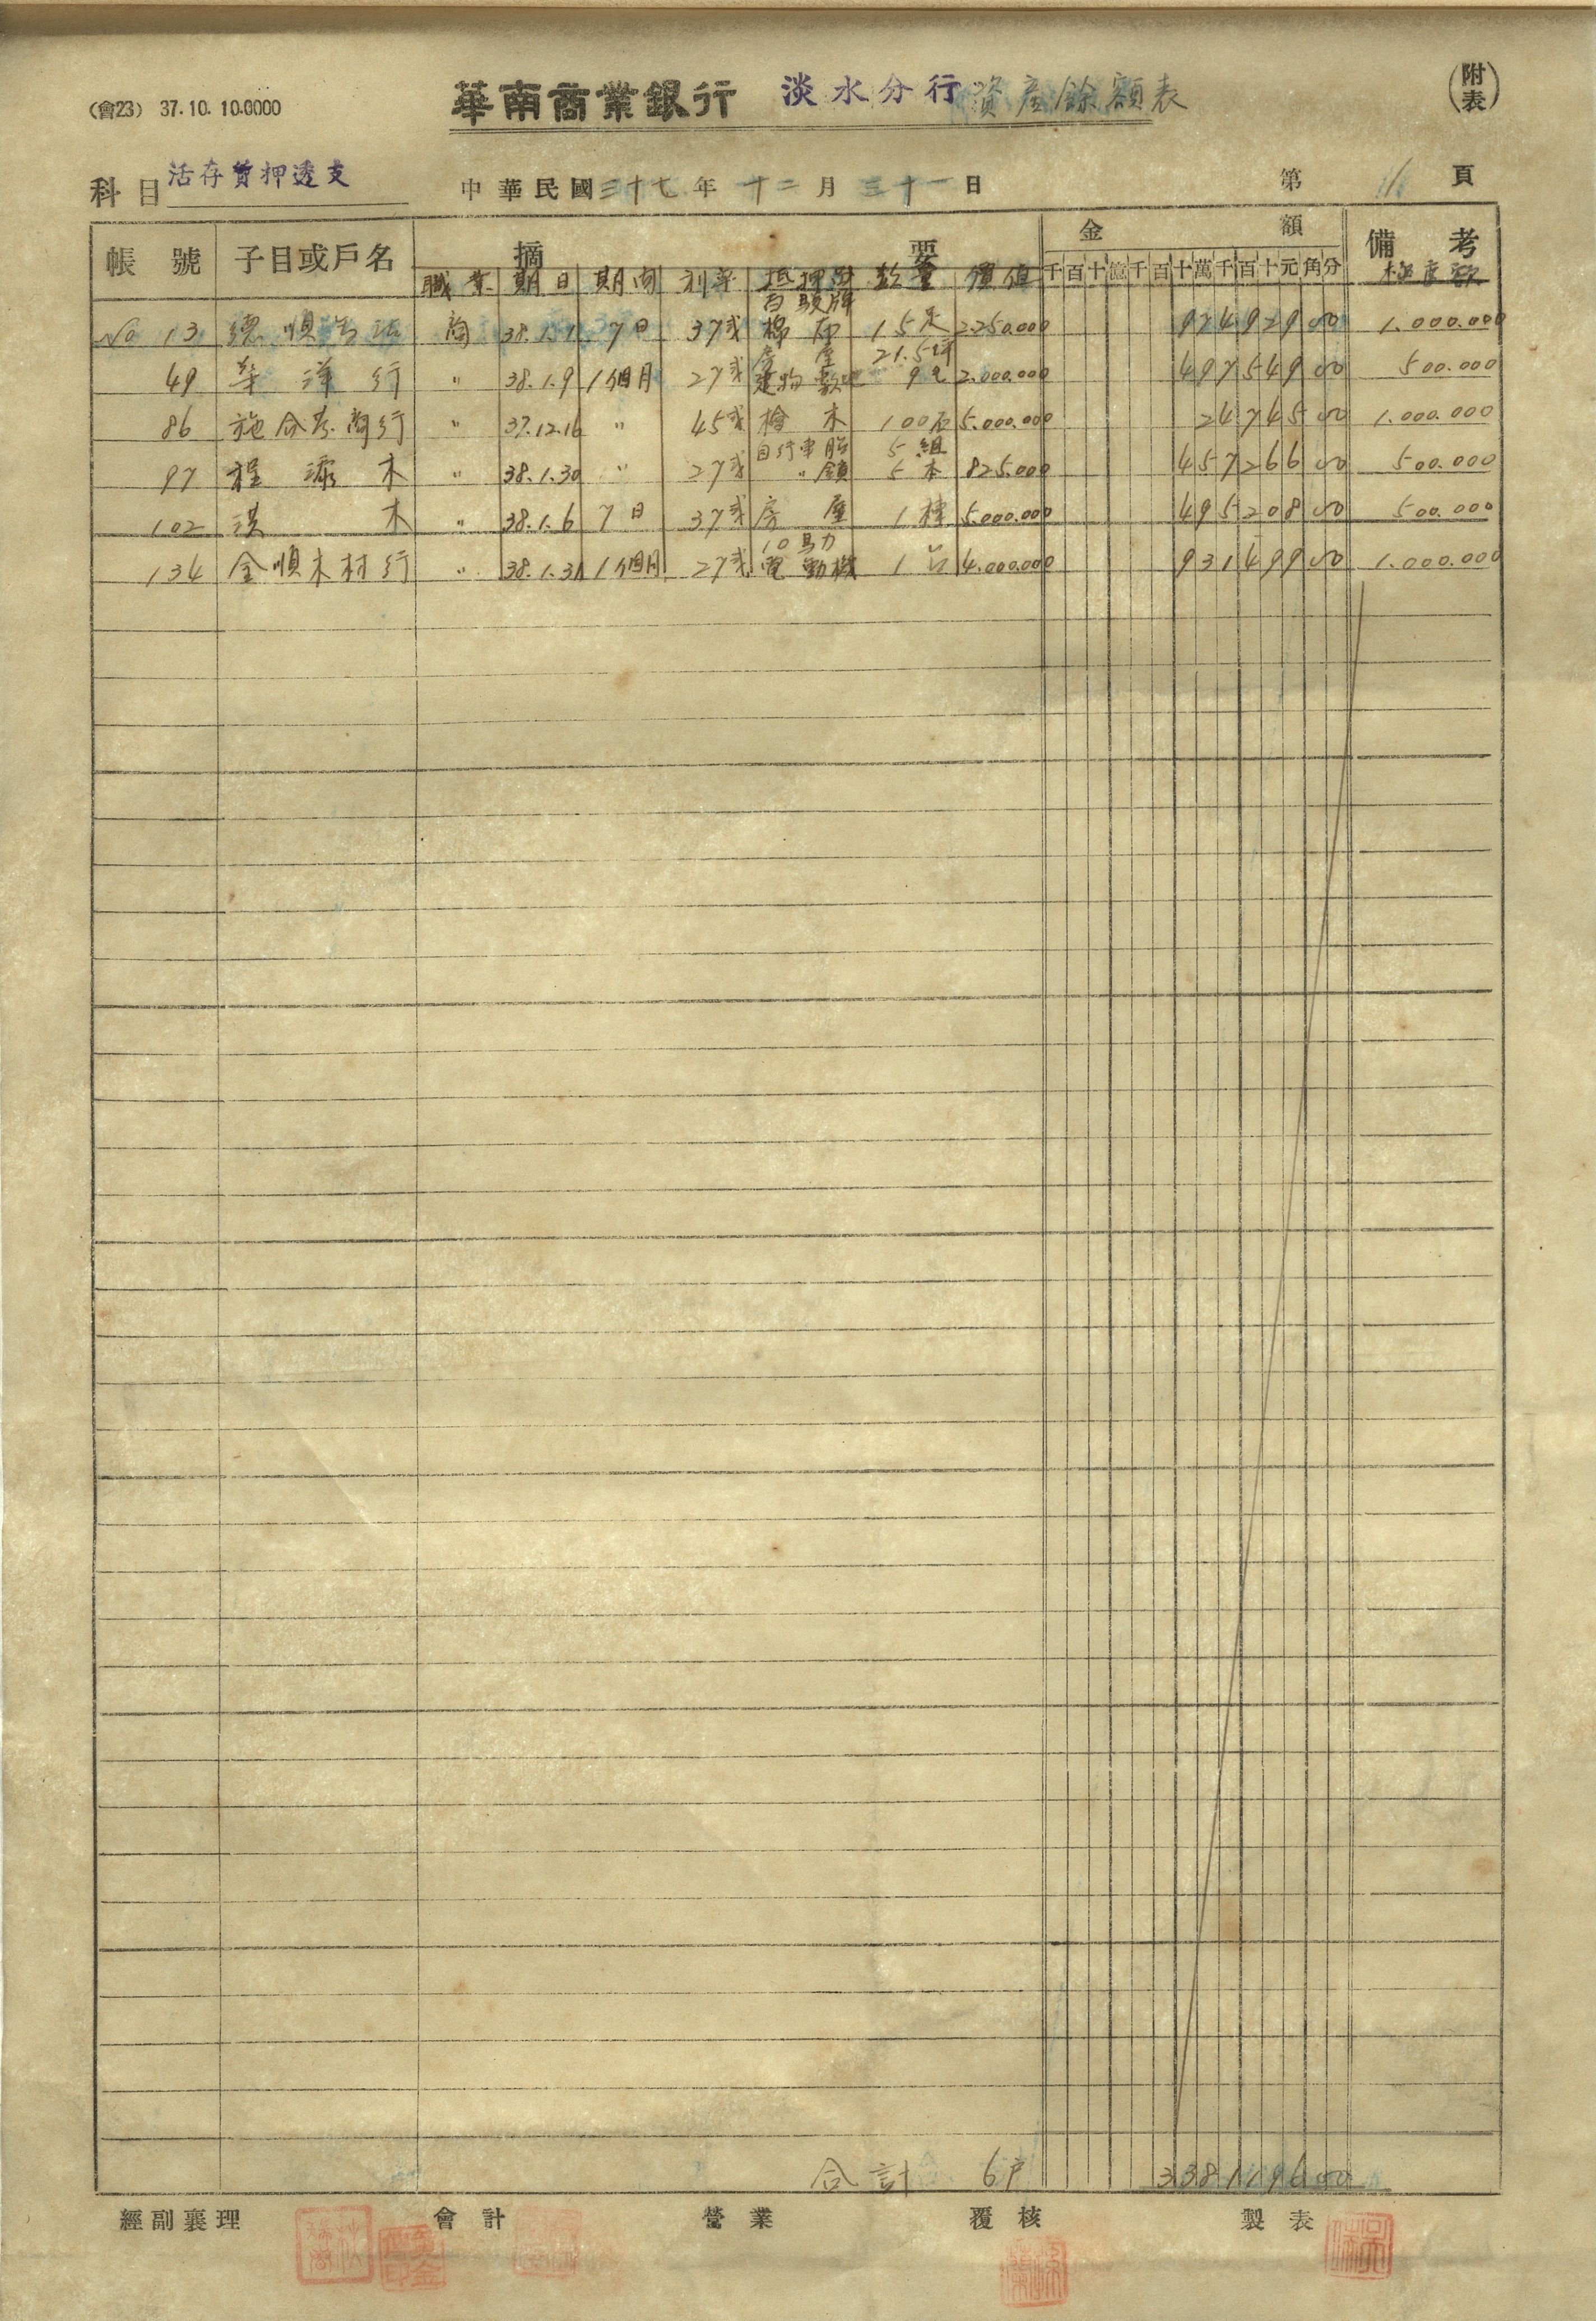 (會23) 37.10. 10.0000
華南商業銀行 淡水分行 資產餘額表
(附表)
科目 活存質押透支
中華民國三十七年十二月三十一日
第 1 頁
帳號 子目或戶名 摘要 金額 備考
職業 期日 期間 利率 抵押品 數量 價值 千百十億千百十萬千百十元角分 極度額
No 13 德順 商 38.1.1 7日 37 棉布 15 2.250.000 924929 00 1.000.000
房屋 21.5坪
49 華洋行 〃 38.1.9 1個月 27 建物敷地 9 2.000.000 497549 00 500.000
86 施合發商行 〃 37.12.16 〃 45 檜木 100石 5.000.000 24745 00 1.000.000
自行車胎 5組
97 程 木 〃 38.1.30 〃 27 〃 鎖 5本 825.000 457266 00 500.000
102 木 〃 38.1.6 7日 37 房屋 1棟 5.000.000 495208 00 500.000
10馬力
134 金順木材行 〃 38.1.31 1個月 27 電動機 1台 4.000.000 931499 00 1.000.000
合計 6戶 3381196 00
經副襄理 會計 營業 覆核 製表